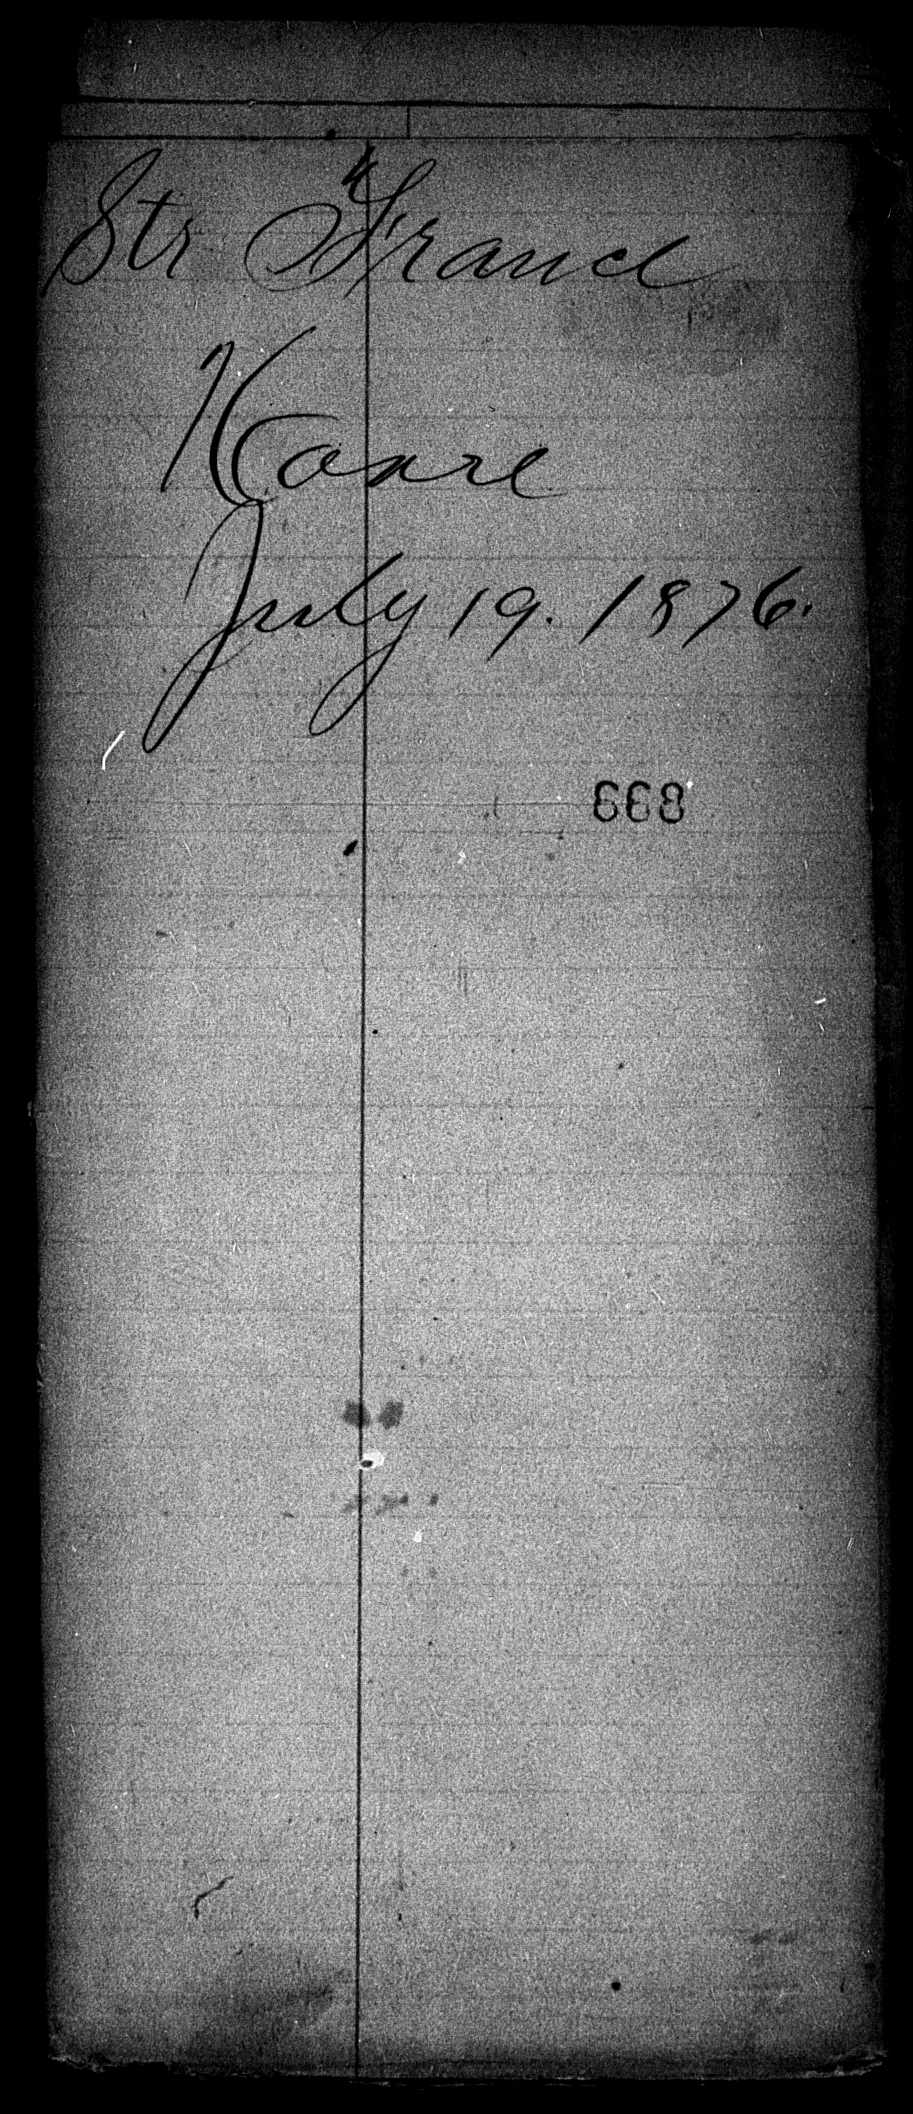 Str "France
Havre
July 19. 1876.
668